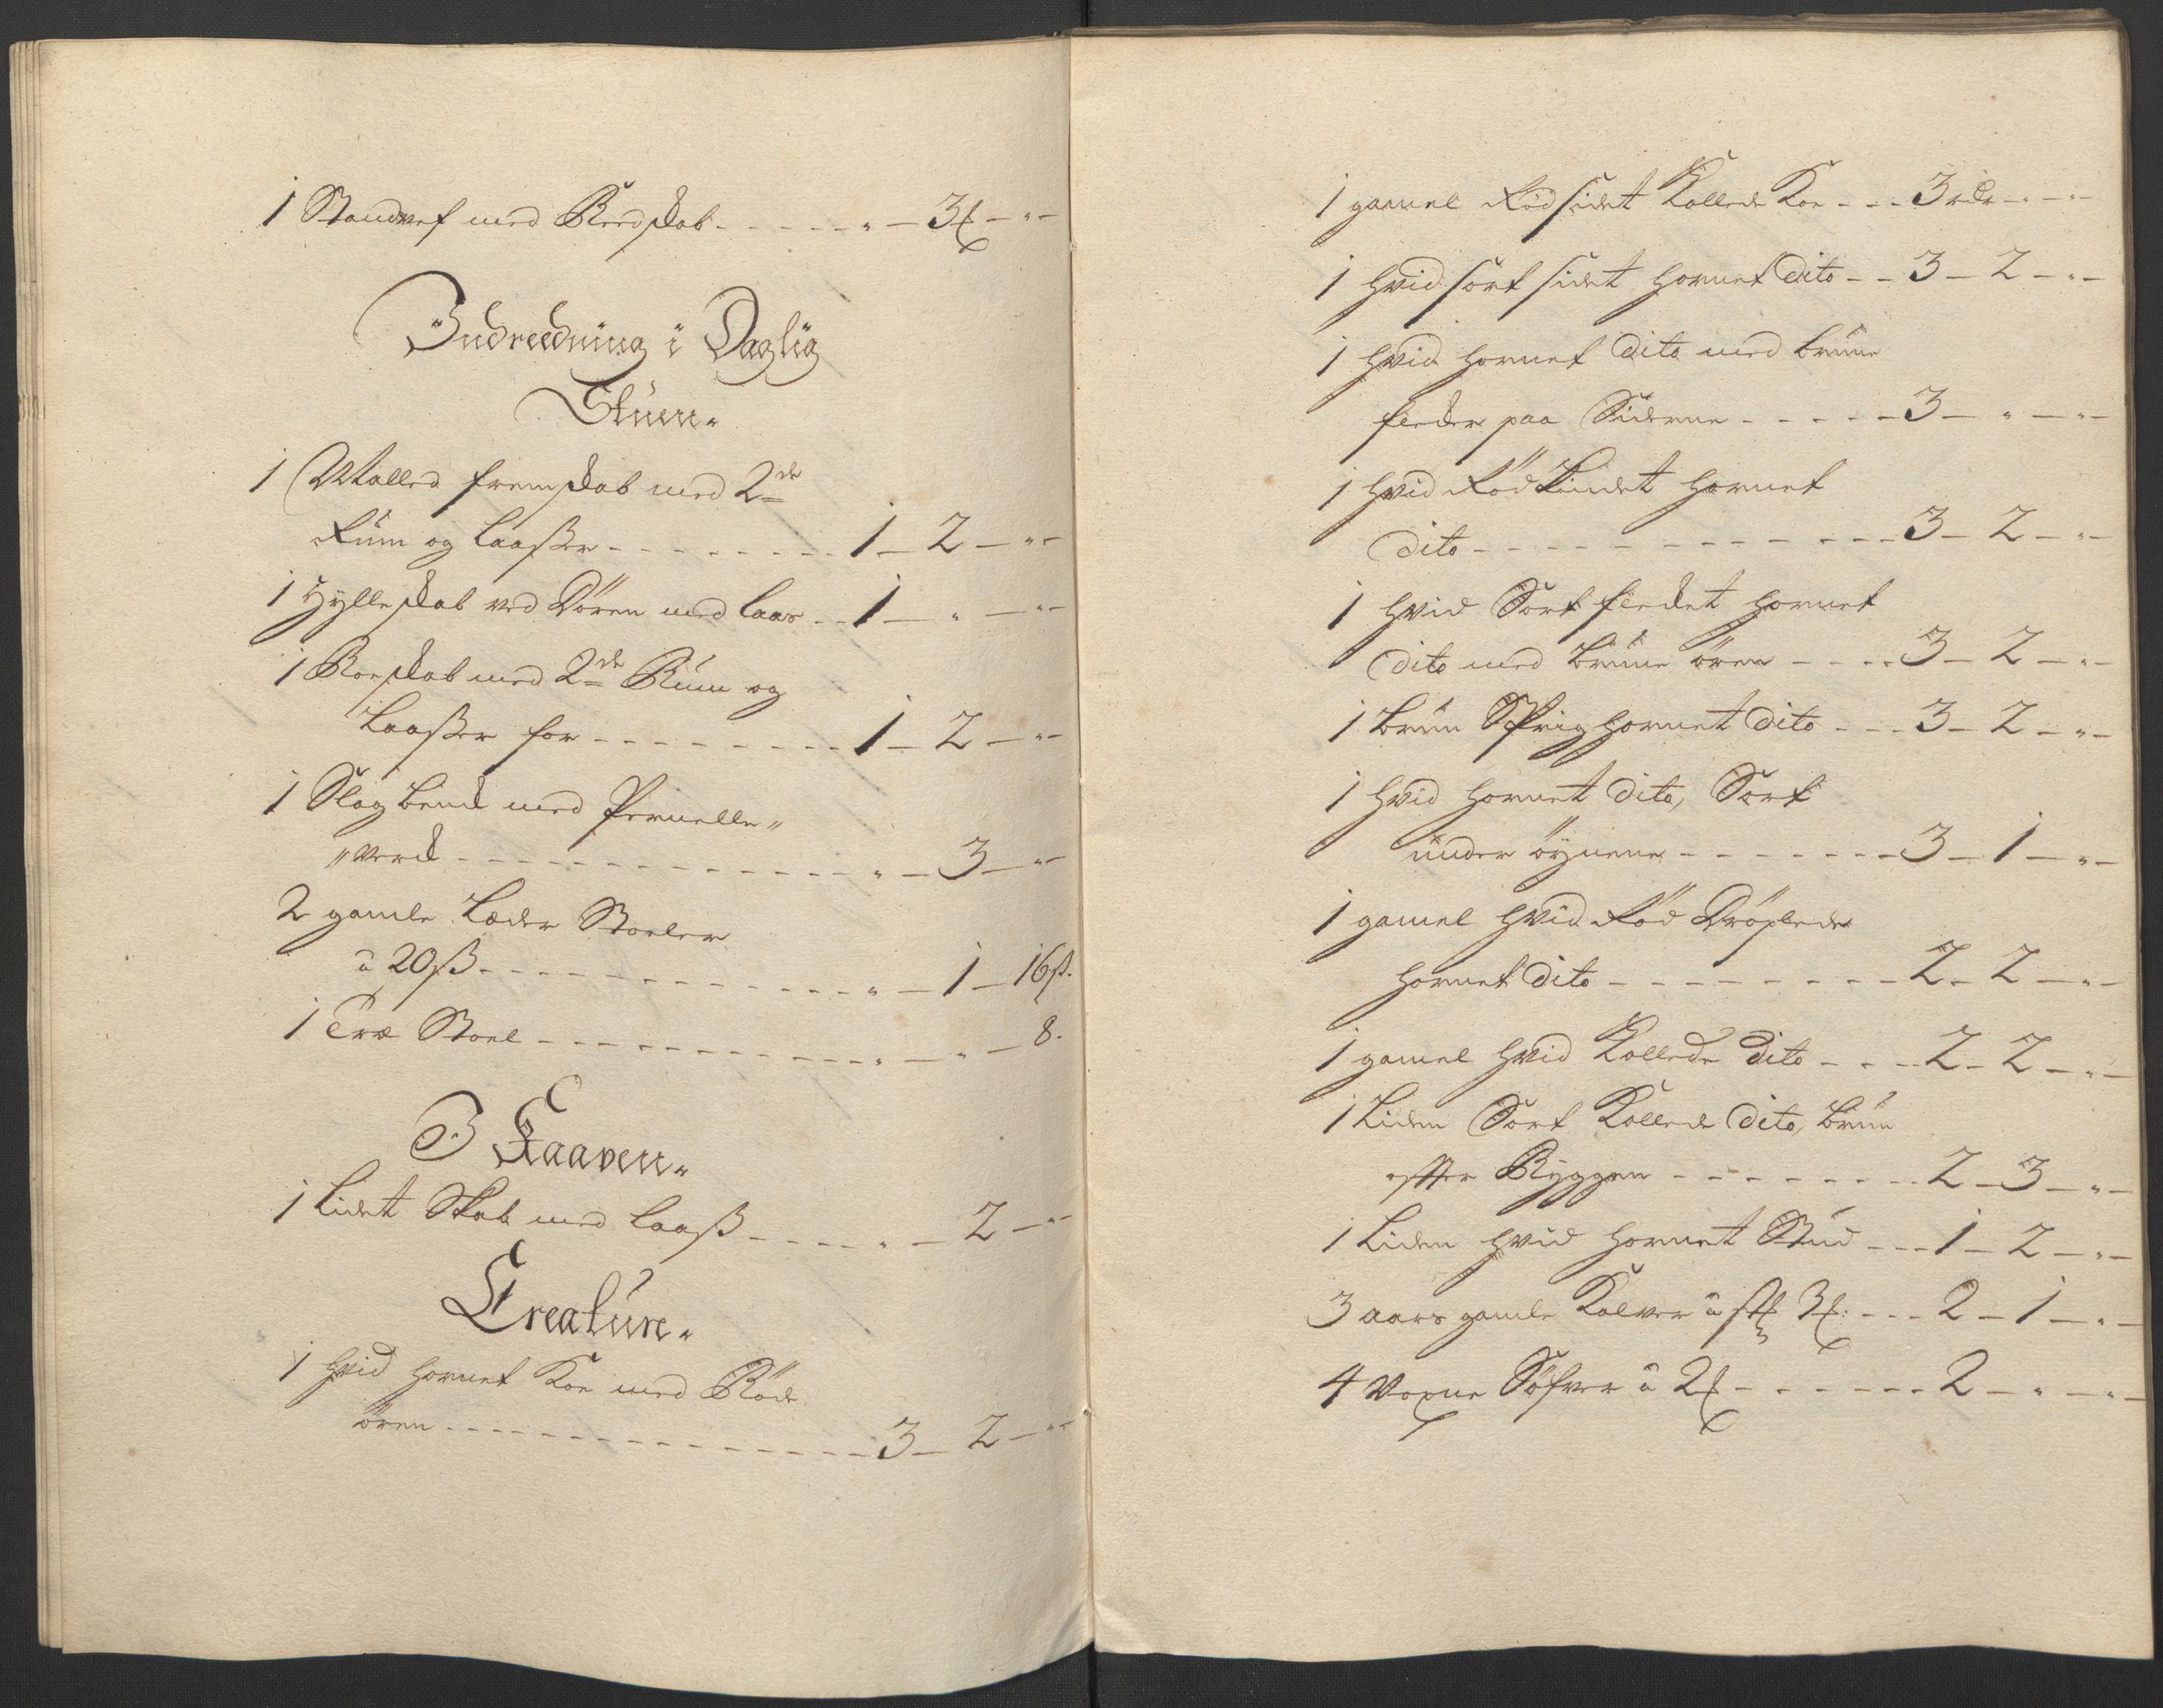 1 Standvef med Reedskab - - - - - " - 3 ƒ - " -
Indreedning i Daglig
Stuen "
1 Mallet fremskab med 2de
Rüm og laaßer - - - - - - - - 1 - 2 - " -
1 Hylleskab ved Dören med laas - - 1 - " - " -
1 Roeskab med 2de Rüm og
Laaßer for - - - - - - - - 1 - 2 - " -
1 Slagbenk med Pernelle "
" verck - - - - - - - - - - - " - 3 - " -
2 gamle Læder Stoeler
à 20 ß - - - - - - - - - - - " - 1 - 16 ß.
1 Træ Stoel - - - - - - - - - - - " - " - 8.
I Kaaven "
1 Lidet Skab med laaß - - - - " - 2 - " -
Creature "
1 hvid hornet Koe med Röde
ören - - - - - - - - - - - - - 3 - 2 - " -
1 gamel Rödsidet Kollede Koe - - - 3 rdr - " - " -
1 hvid sort sidet hornet dito - - 3 - 2 - " -
1 hvid hornet dito med brüne
flecker paa Siderne - - - - - 3 - " - " -
1 hvid Röd Kindet hornet
dito - - - - - - - - - - - - 3 - 2 - " -
1 hvid Sort flecket hornet
dito med brüne ören - - - - 3 - 2 - " -
1 brün Sprig hornet dito - - - 3 - 2 - " -
1 hvid hornet dito, Sort
ünder öynene - - - - - - - 3 - 1 - " -
1 gamel hvid Röd Dröplede
hornet dito - - - - - - - - 2 - 2 - " -
1 gamel hvid Kollede dito - - - 2 - 2 - " -
1 Liden Sort Kollede dito, brün
efter Ryggen - - - - - - - - 2 - 3 - " -
1 Liden hvid hornet Stüd - - - 1 - 2 - " -
3 aars gamle Kalver à st 3 ƒ: - - - 2 - 1 - " -
4 Voxne Söfver à 2 ƒ - - - - - - - 2 - " - " -